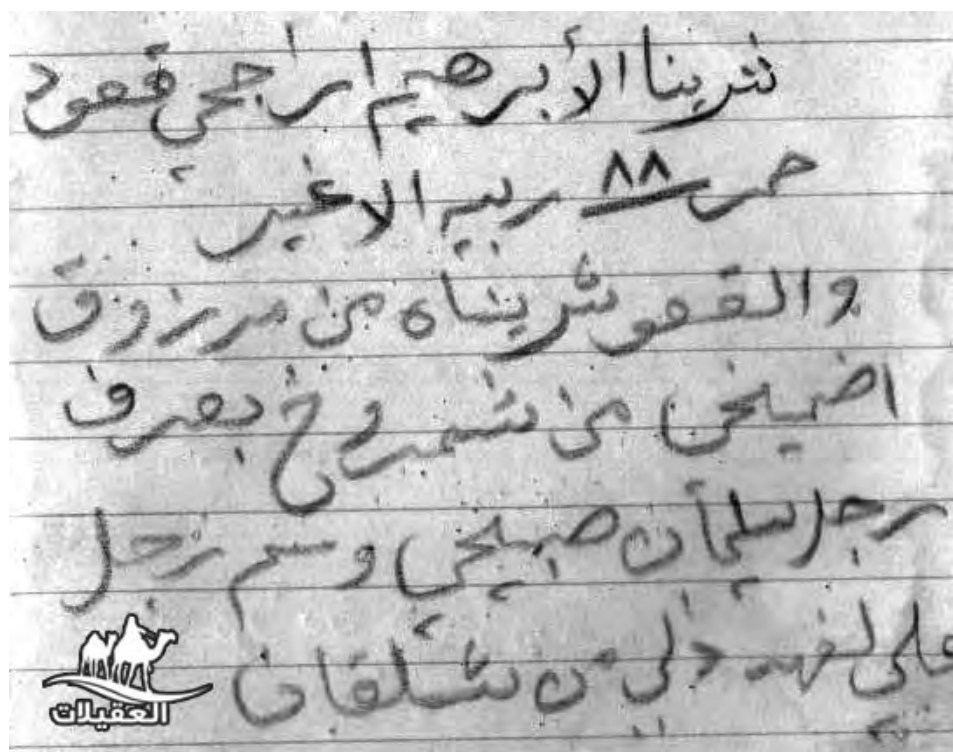 شرينا الأبرهيم اراجحي قعود
حر ٨٨ ربيع الاخير
والقعو شريناه من مرزوق
اضبيحي من شمروخ بعرف
رجل سليمان صبيحي وسم رجل
علي لفهد
العقيلات